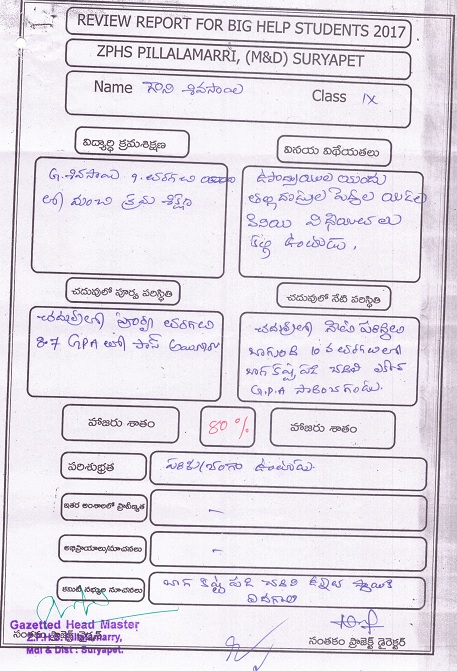 REVIEW REPORT FOR BIG HELP STUDENTS 2017
ZPHS PILLALAMARRI, (M&D) SURYAPET
Name గౌని శివసాయి
Class IX
విద్యార్థి క్రమశిక్షణ
G. శివసాయి 9. తరగతి
లో మంచి క్రమ శిక్షణ
వినయ విధేయతలు
ఉపాధ్యాయుల యందు
తల్లి దండ్రుల పెద్దల యెడల
వినయ విధేయతలు
కల్గి ఉంటాడు.
చదువులో పూర్వ పరిస్థితి
చదువులో తరగతి
8.7 GPA లో పాస్
చదువులో నేటి పరిస్థితి
చదువులో నేటి పరిస్థితి
బాగుంది 10 వ తరగతిలో
బాగ కష్ట పడి చదివి
G.P.A
హాజరు శాతం
80 %
హాజరు శాతం
పరిశుభ్రత
పరిశుభ్రంగా ఉంటాడు.
ఇతర అంశాలలో ప్రావీణ్యత
-
అభిప్రాయాలు/సూచనలు
-
కమిటీ సభ్యుల సూచనలు
బాగ కష్ట పడి చదివి ఉన్నత స్థాయికి
ఎదగాలి
Gazetted Head Master
Z.P.H.S. Pillalamarry,
Mdl & Dist : Suryapet.
సంతకం ప్రాజెక్ట్ డైరెక్టర్